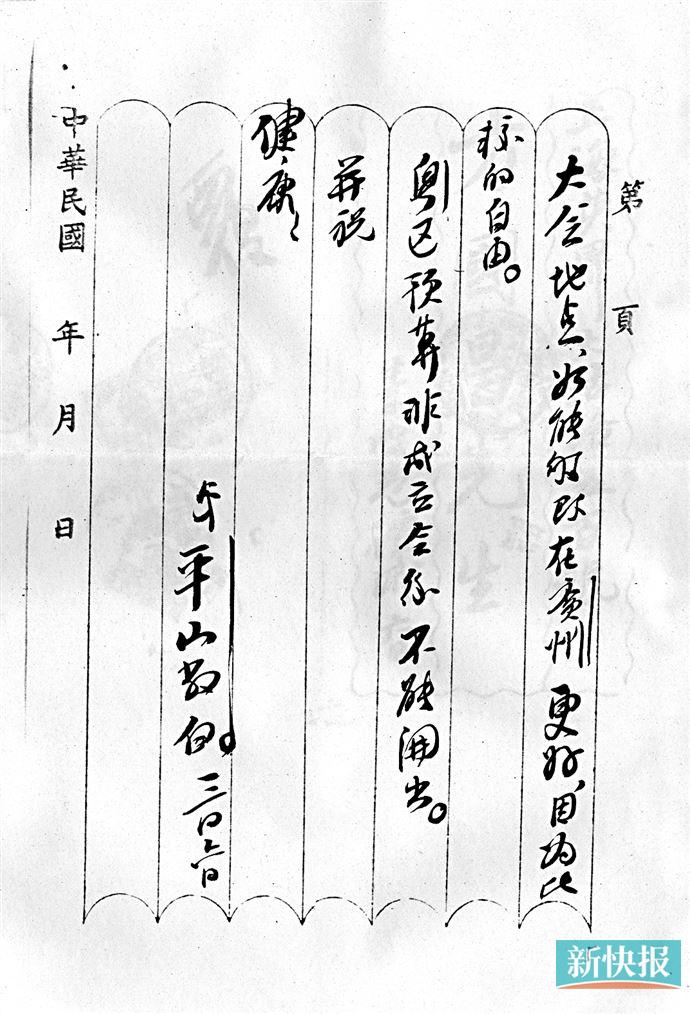 第　頁
大会地点,如能够改在廣州更好,因为比
較的自由。
粤区预算非成立会后不能開出。
并祝
健康!
平山敬白。三月六日
中華民國　年　月　日
新快报